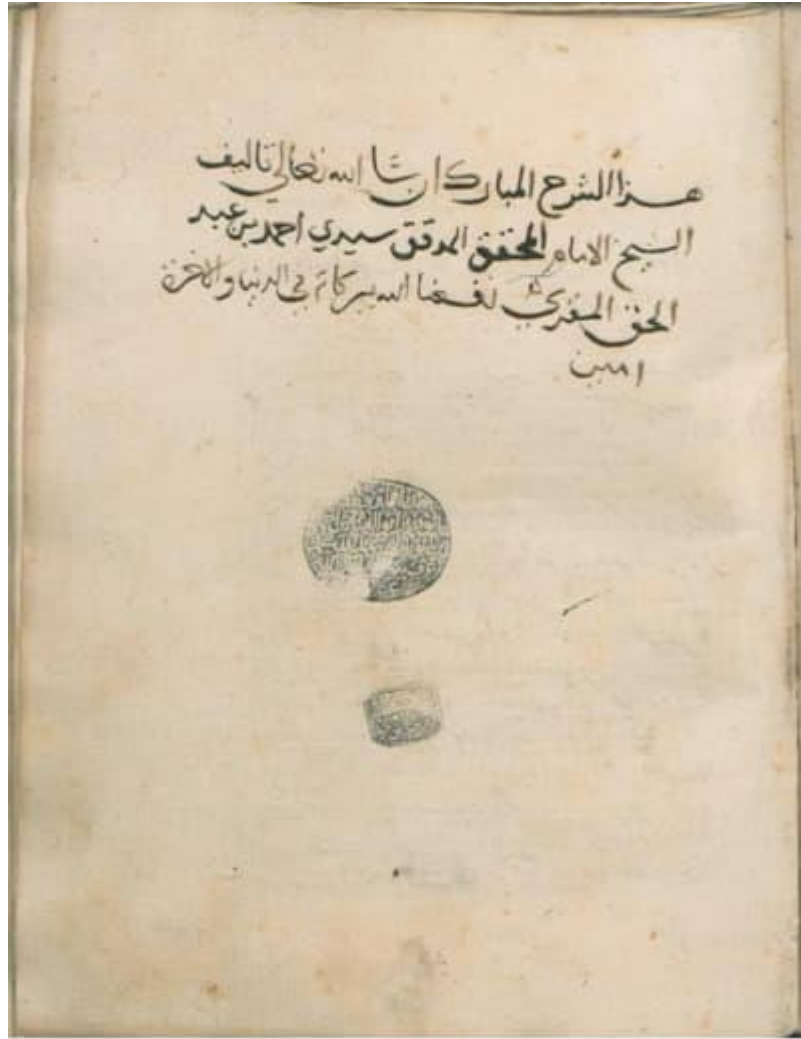 هذا الشرح المبارك ان شا الله تعالى تاليف
الشيخ الامام المحقق المدقق سيدي احمد بن عبد
الحق نفعنا الله ببركاته في الدنيا والاخرة
امين